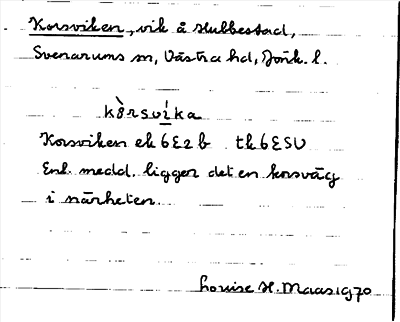 Korsviken, vik å Hubbestad,
Svenarums sn, Västra hd, Jönk. l.
kòrsvíka
Korsviken ek 6E2b tk 6ESV
Enl. medd. ligger det en korsväg
i närheten.
Louise H. Maas 1970